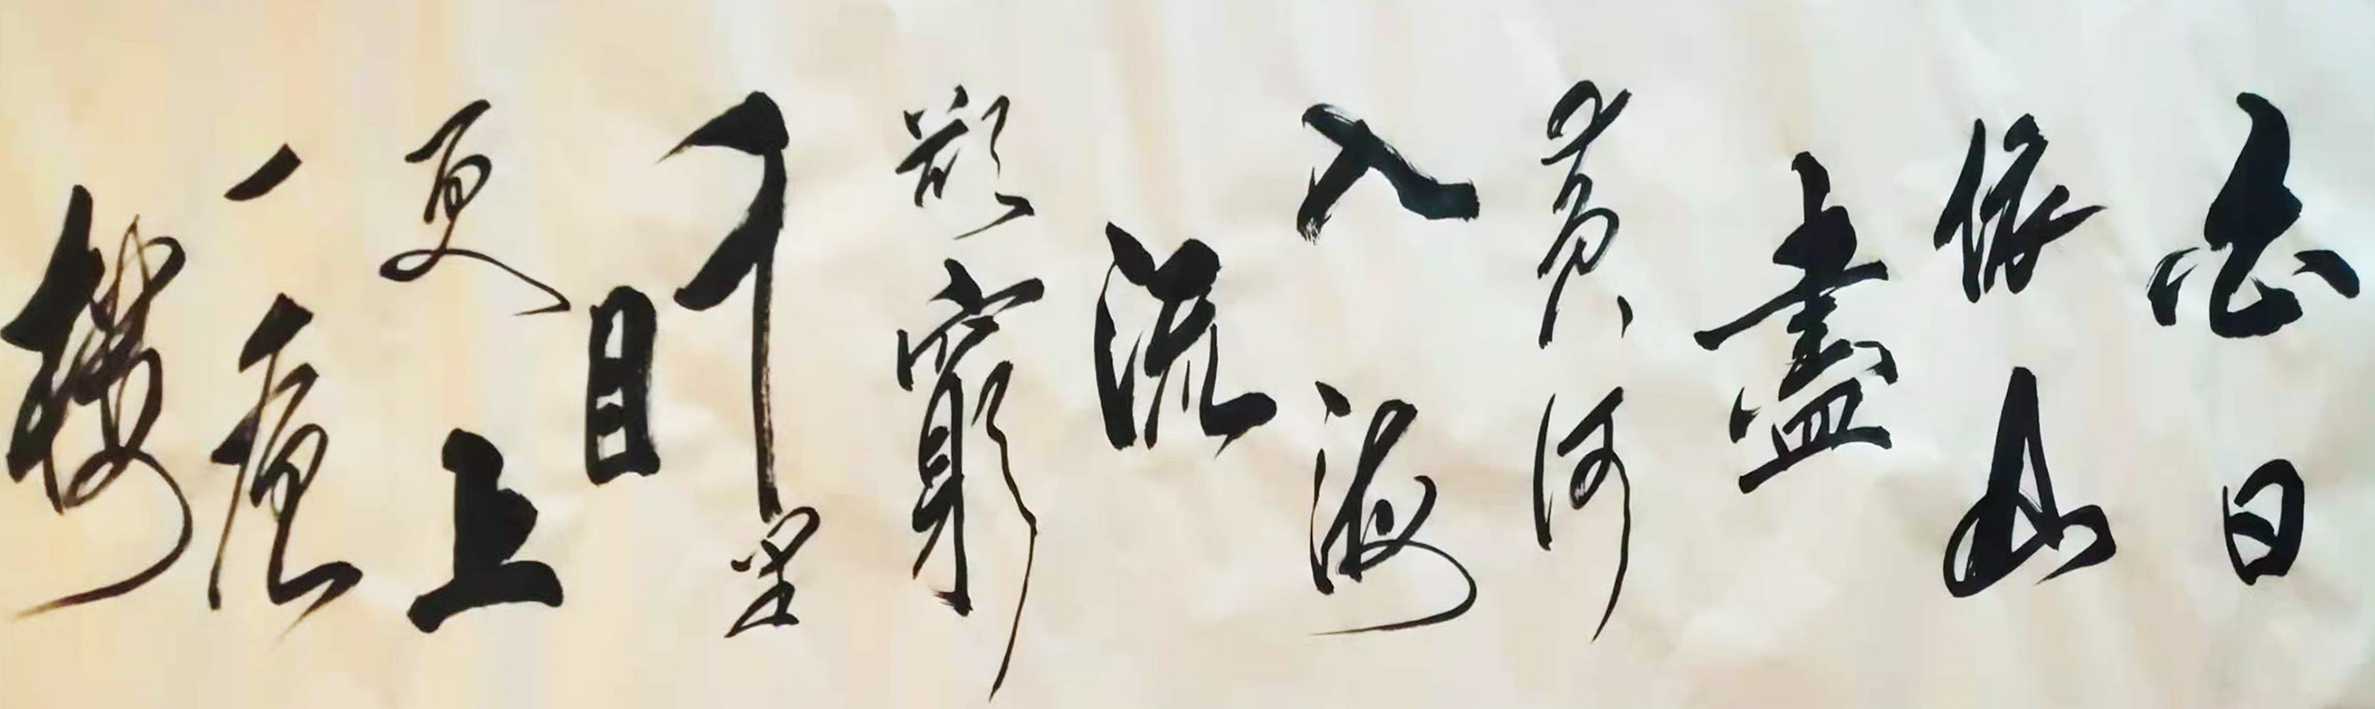 白日
依山
盡
黄河
入海
流
欲窮
千里
目
更上
一層
樓